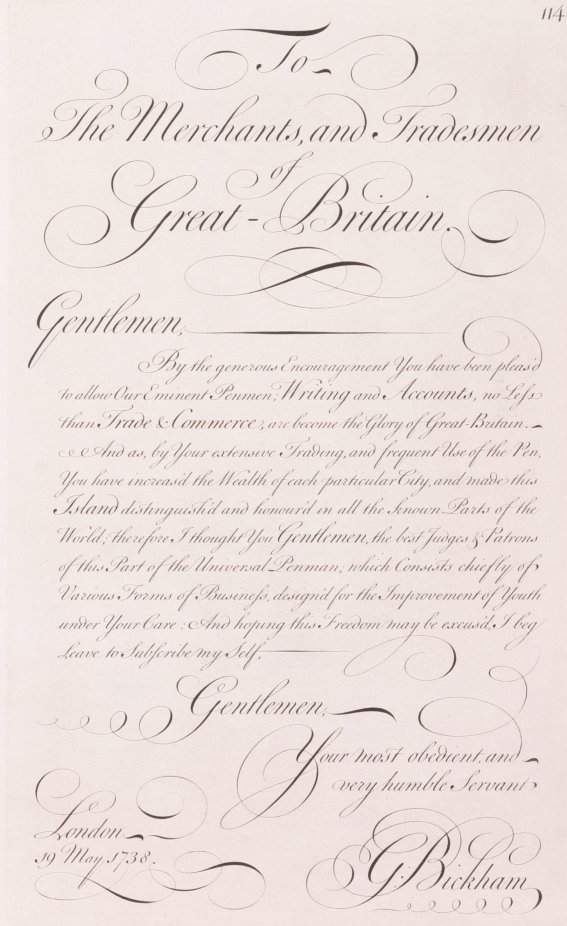 114
To
The Merchants, and Tradesmen
of
Great-Britain.
Gentlemen,
By the generous Encouragement You have been pleas'd
to allow Our Eminent Penmen; Writing and Accounts, no Less
than Trade & Commerce, are become the Glory of Great-Britain.
And as, by Your extensive Trading, and frequent Use of the Pen,
You have increas'd the Wealth of each particular City, and made this
Island distinguish'd and honour'd in all the known Parts of the
World; therefore I thought You Gentlemen, the best Judges & Patrons
of this Part of the Universal Penman; which Consists chiefly of
Various Forms of Business, design'd for the Improvement of Youth
under Your Care: And hoping this Freedom may be excus'd, I beg
Leave to Subscribe my Self.
Gentlemen;
Your most obedient, and
very humble Servant
London
19 May 1738.
G. Bickham